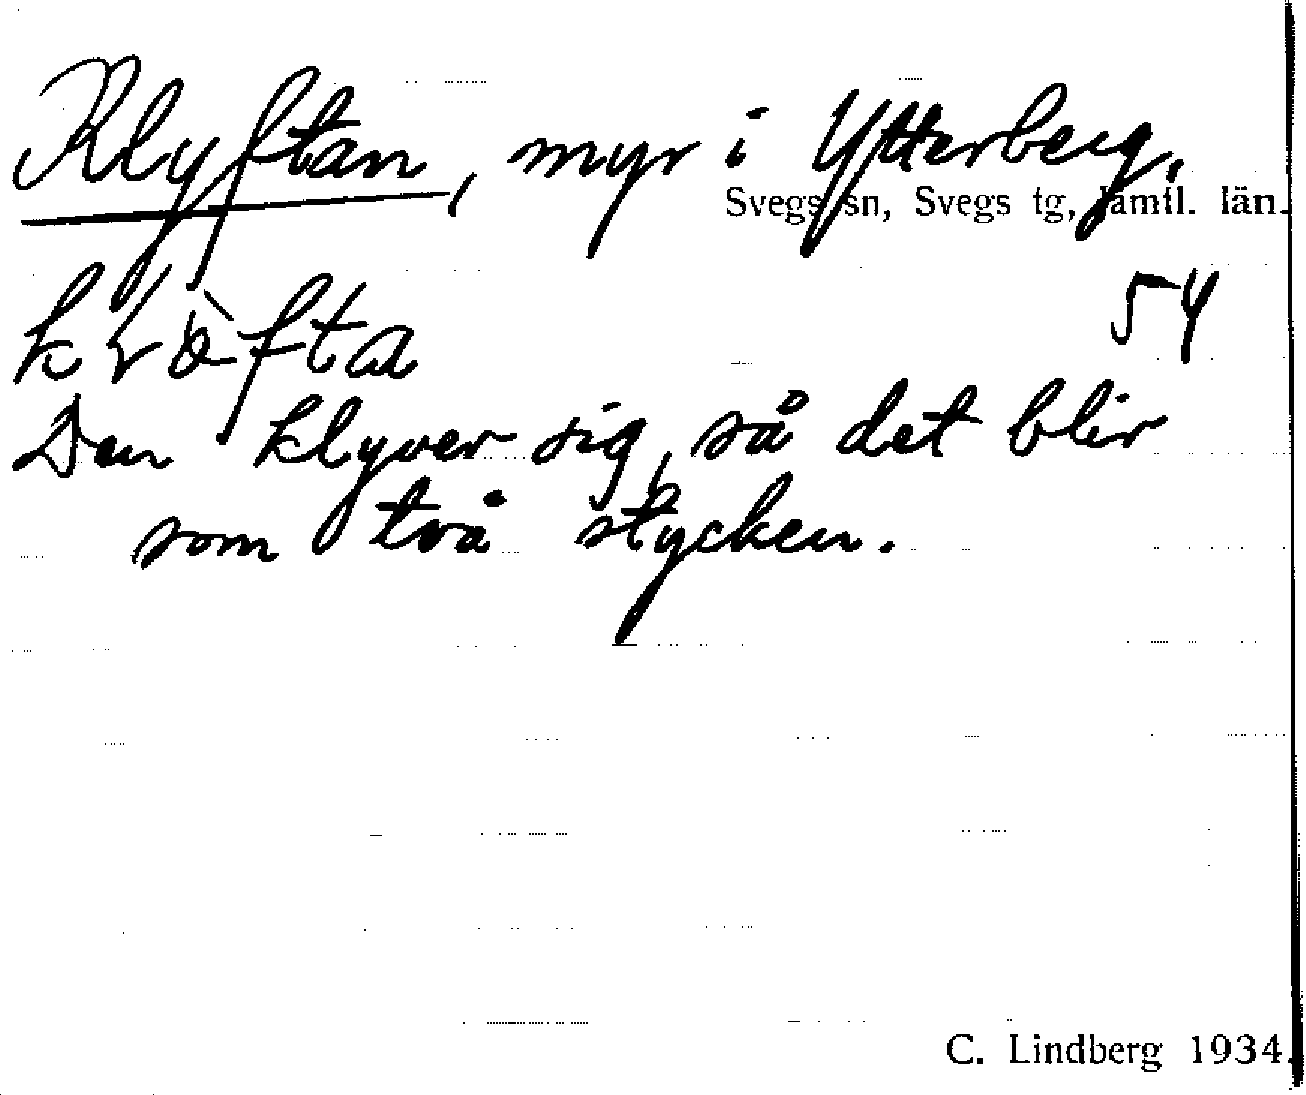 Klyftan, myr i Ytterberg.
Svegs sn, Svegs tg, Jämtl. län.
54
Den klyver sig, så det blir
som två stycken.
C. Lindberg 1934.